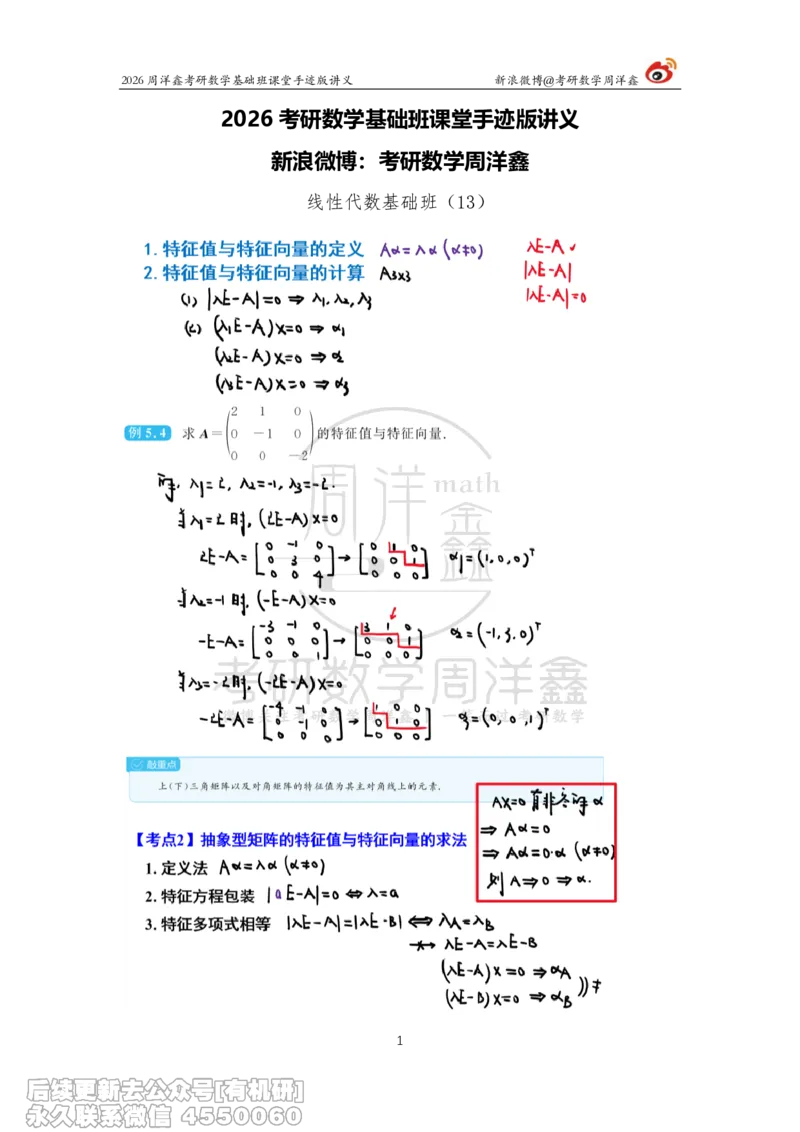 2026 周洋鑫考研数学基础班课堂手迹版讲义 新浪微博@考研数学周洋鑫
2026 考研数学基础班课堂手迹版讲义
新浪微博：考研数学周洋鑫
线性代数基础班（13）
1. 特征值与特征向量的定义 Aα=λα (α≠0) λE-A ✓
2. 特征值与特征向量的计算 A3x3 |λE-A|
(1) |λE-A|=0 ⇒ λ1, λ2, λ3 |λE-A|=0
(2) (λ1E-A)X=0 ⇒ α1
(λ2E-A)X=0 ⇒ α2
(λ3E-A)X=0 ⇒ α3
2 1 0
例 5.4 求 A= 0 -1 0 的特征值与特征向量.
0 0 -2
解, λ1=2, λ2=-1, λ3=-2.
当λ1=2时, (2E-A)X=0
0 -1 0 0 1 0
2E-A= 0 3 0 → 0 0 1 α1=(1,0,0)ᵀ
0 0 4 0 0 0
当λ2=-1时, (-E-A)X=0
-3 -1 0 3 1 0
-E-A= 0 0 0 → 0 0 1 α2=(-1,3,0)ᵀ
0 0 1 0 0 0
当λ3=-2时, (-2E-A)X=0
-4 -1 0 1 0 0
-2E-A= 0 -1 0 → 0 1 0 α3=(0,0,1)ᵀ
0 0 0 0 0 0
敲重点
上(下)三角矩阵以及对角矩阵的特征值为其主对角线上的元素.
AX=0 有非零解α
⇒ Aα=0
⇒ Aα=0·α (α≠0)
则 A⇒0 ⇒α.
【考点2】抽象型矩阵的特征值与特征向量的求法
1. 定义法 Aα=λα (α≠0)
2. 特征方程包装 |aE-A|=0 ⇔ λ=a
3. 特征多项式相等 |λE-A|=|λE-B| ⇔ λA=λB
⇏ λE-A=λE-B
(λE-A)X=0 ⇒ αA
(λE-B)X=0 ⇒ αB )) ≠
1
周洋鑫 math
考研数学周洋鑫
后续更新去公众号[有机研]
永久联系微信 4550060